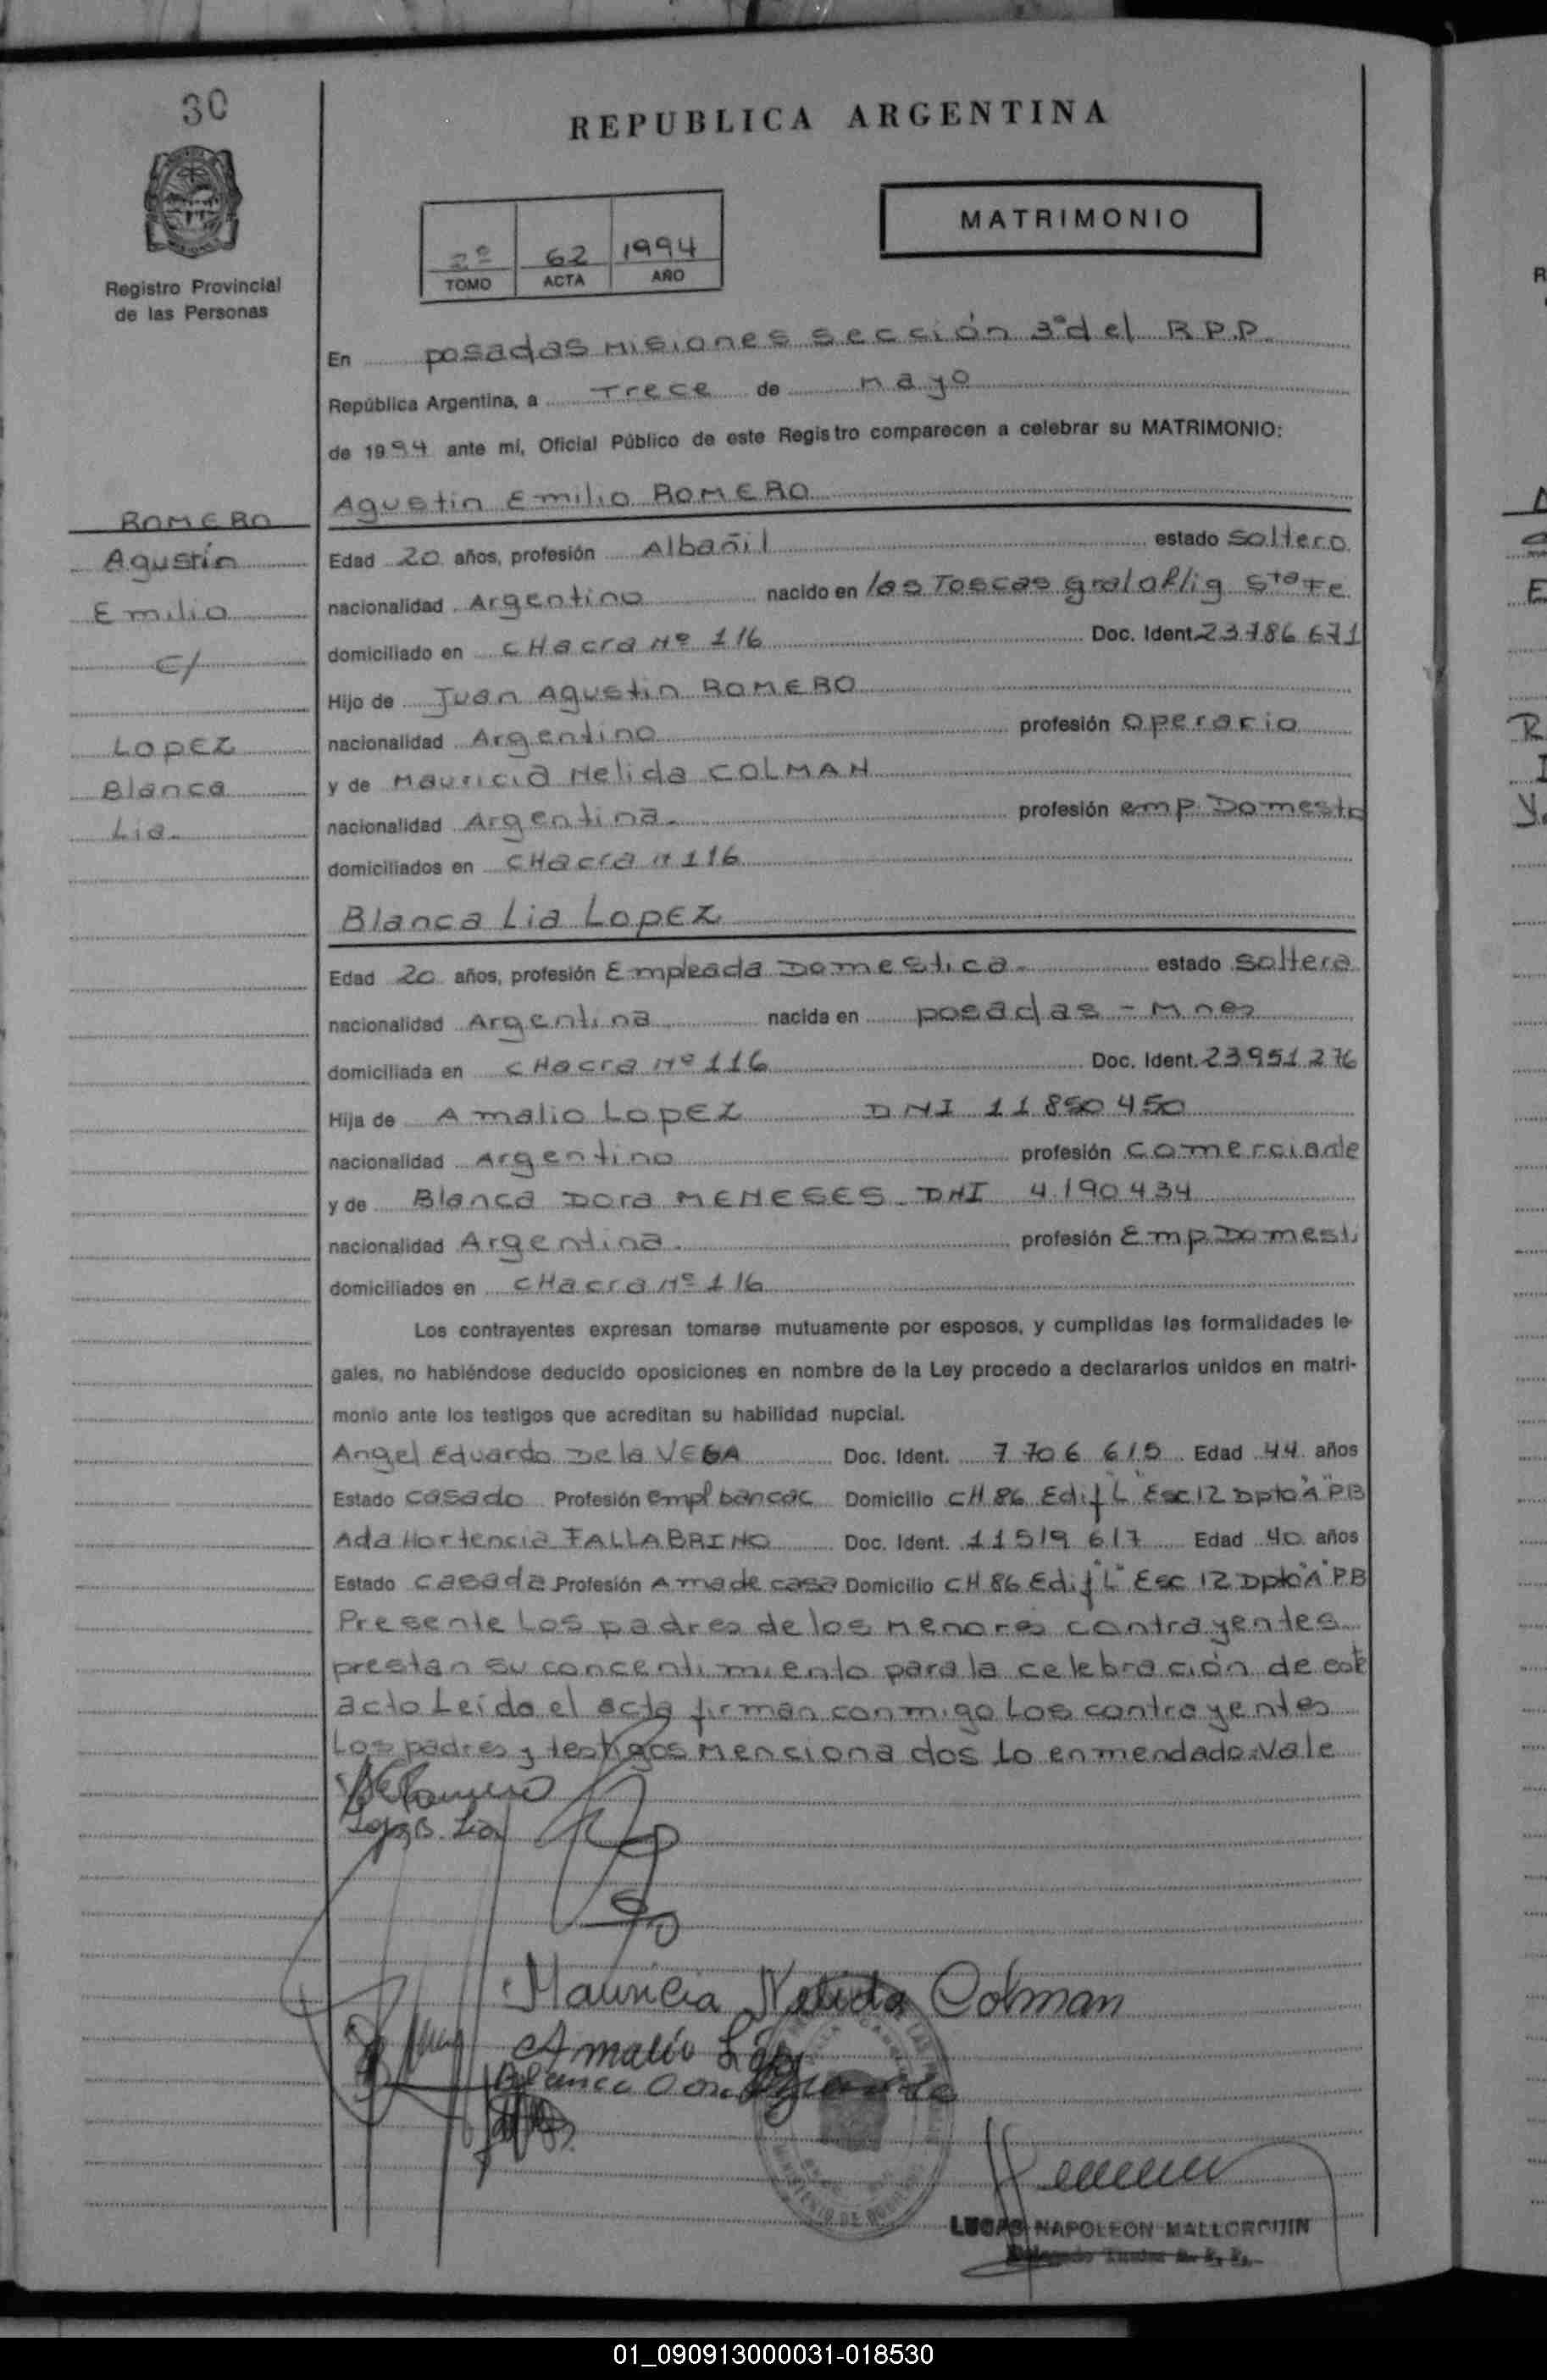 30
REPUBLICA ARGENTINA
MATRIMONIO
2º 62 1994
TOMO ACTA AÑO
Registro Provincial
de las Personas
En posadas Misiones sección 3ª del R.P.P.
República Argentina, a Trece de mayo
de 1994 ante mí, Oficial Público de este Registro comparecen a celebrar su MATRIMONIO:
Agustin Emilio ROMERO
ROMERO
Agustín
Emilio
c/
LOPEZ
Blanca
Lia
Edad 20 años, profesión Albañil estado soltero
nacionalidad Argentino nacido en las Toscas gral oblig Sta Fe
domiciliado en CHacra Nº 116 Doc. Ident. 23786671
Hijo de Juan Agustin ROMERO
nacionalidad Argentino profesión operario
y de Mauricia Nelida COLMAN
nacionalidad Argentina profesión emp. Domest
domiciliados en CHacra n 116
Blanca Lia LopEZ
Edad 20 años, profesión Empleada Domestica estado soltera
nacionalidad Argentina nacida en posadas - Mnes
domiciliada en CHacra Nº 116 Doc. Ident. 23951276
Hija de Amalio LopEZ DNI 11850450
nacionalidad Argentino profesión comerciante
y de Blanca Dora MENESES DNI 4.190434
nacionalidad Argentina profesión Emp Domesti
domiciliados en CHacra Nº 116
Los contrayentes expresan tomarse mutuamente por esposos, y cumplidas las formalidades le-
gales, no habiéndose deducido oposiciones en nombre de la Ley procedo a declararlos unidos en matri-
monio ante los testigos que acreditan su habilidad nupcial.
Angel Eduardo De la VEGA Doc. Ident. 7 706 615 Edad 44 años
Estado casado Profesión empl bancac Domicilio CH 86 Edif "L" Esc 12 Dpto "A" PB
Ada Hortencia FALLABRINO Doc. Ident. 11519617 Edad 40 años
Estado casada Profesión Ama de casa Domicilio CH 86 Edif "L" Esc 12 Dpto "A" P.B
Presente Los padres de los menores contrayentes
prestan su concentimiento para la celebración de este
acto Leída el acta firman conmigo Los contrayentes
Los padres y testigos mencionados Lo enmendado: Vale
Lopez B. Lia
Mauricia Nelida Colman
Amalio López
Blanca Dora
LUCAS NAPOLEON MALLORQUIN
Delegado Titular R. P. P.
01_090913000031-018530